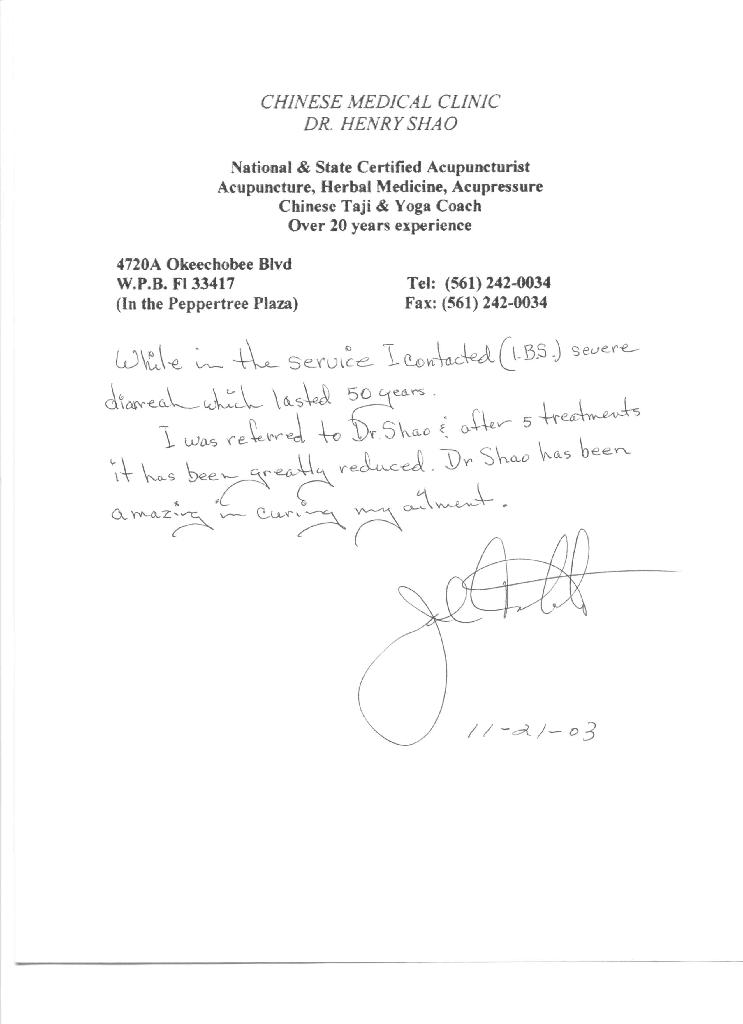 CHINESE MEDICAL CLINIC
DR. HENRY SHAO
National & State Certified Acupuncturist
Acupuncture, Herbal Medicine, Acupressure
Chinese Taji & Yoga Coach
Over 20 years experience
4720A Okeechobee Blvd
W.P.B. Fl 33417
Tel: (561) 242-0034
(In the Peppertree Plaza)
Fax: (561) 242-0034
While in the service I contacted (I.B.S.) severe
diarreah which lasted 50 years.
I was referred to Dr. Shao & after 5 treatments
it has been greatly reduced. Dr Shao has been
amazing in curing my ailment.
11-21-03